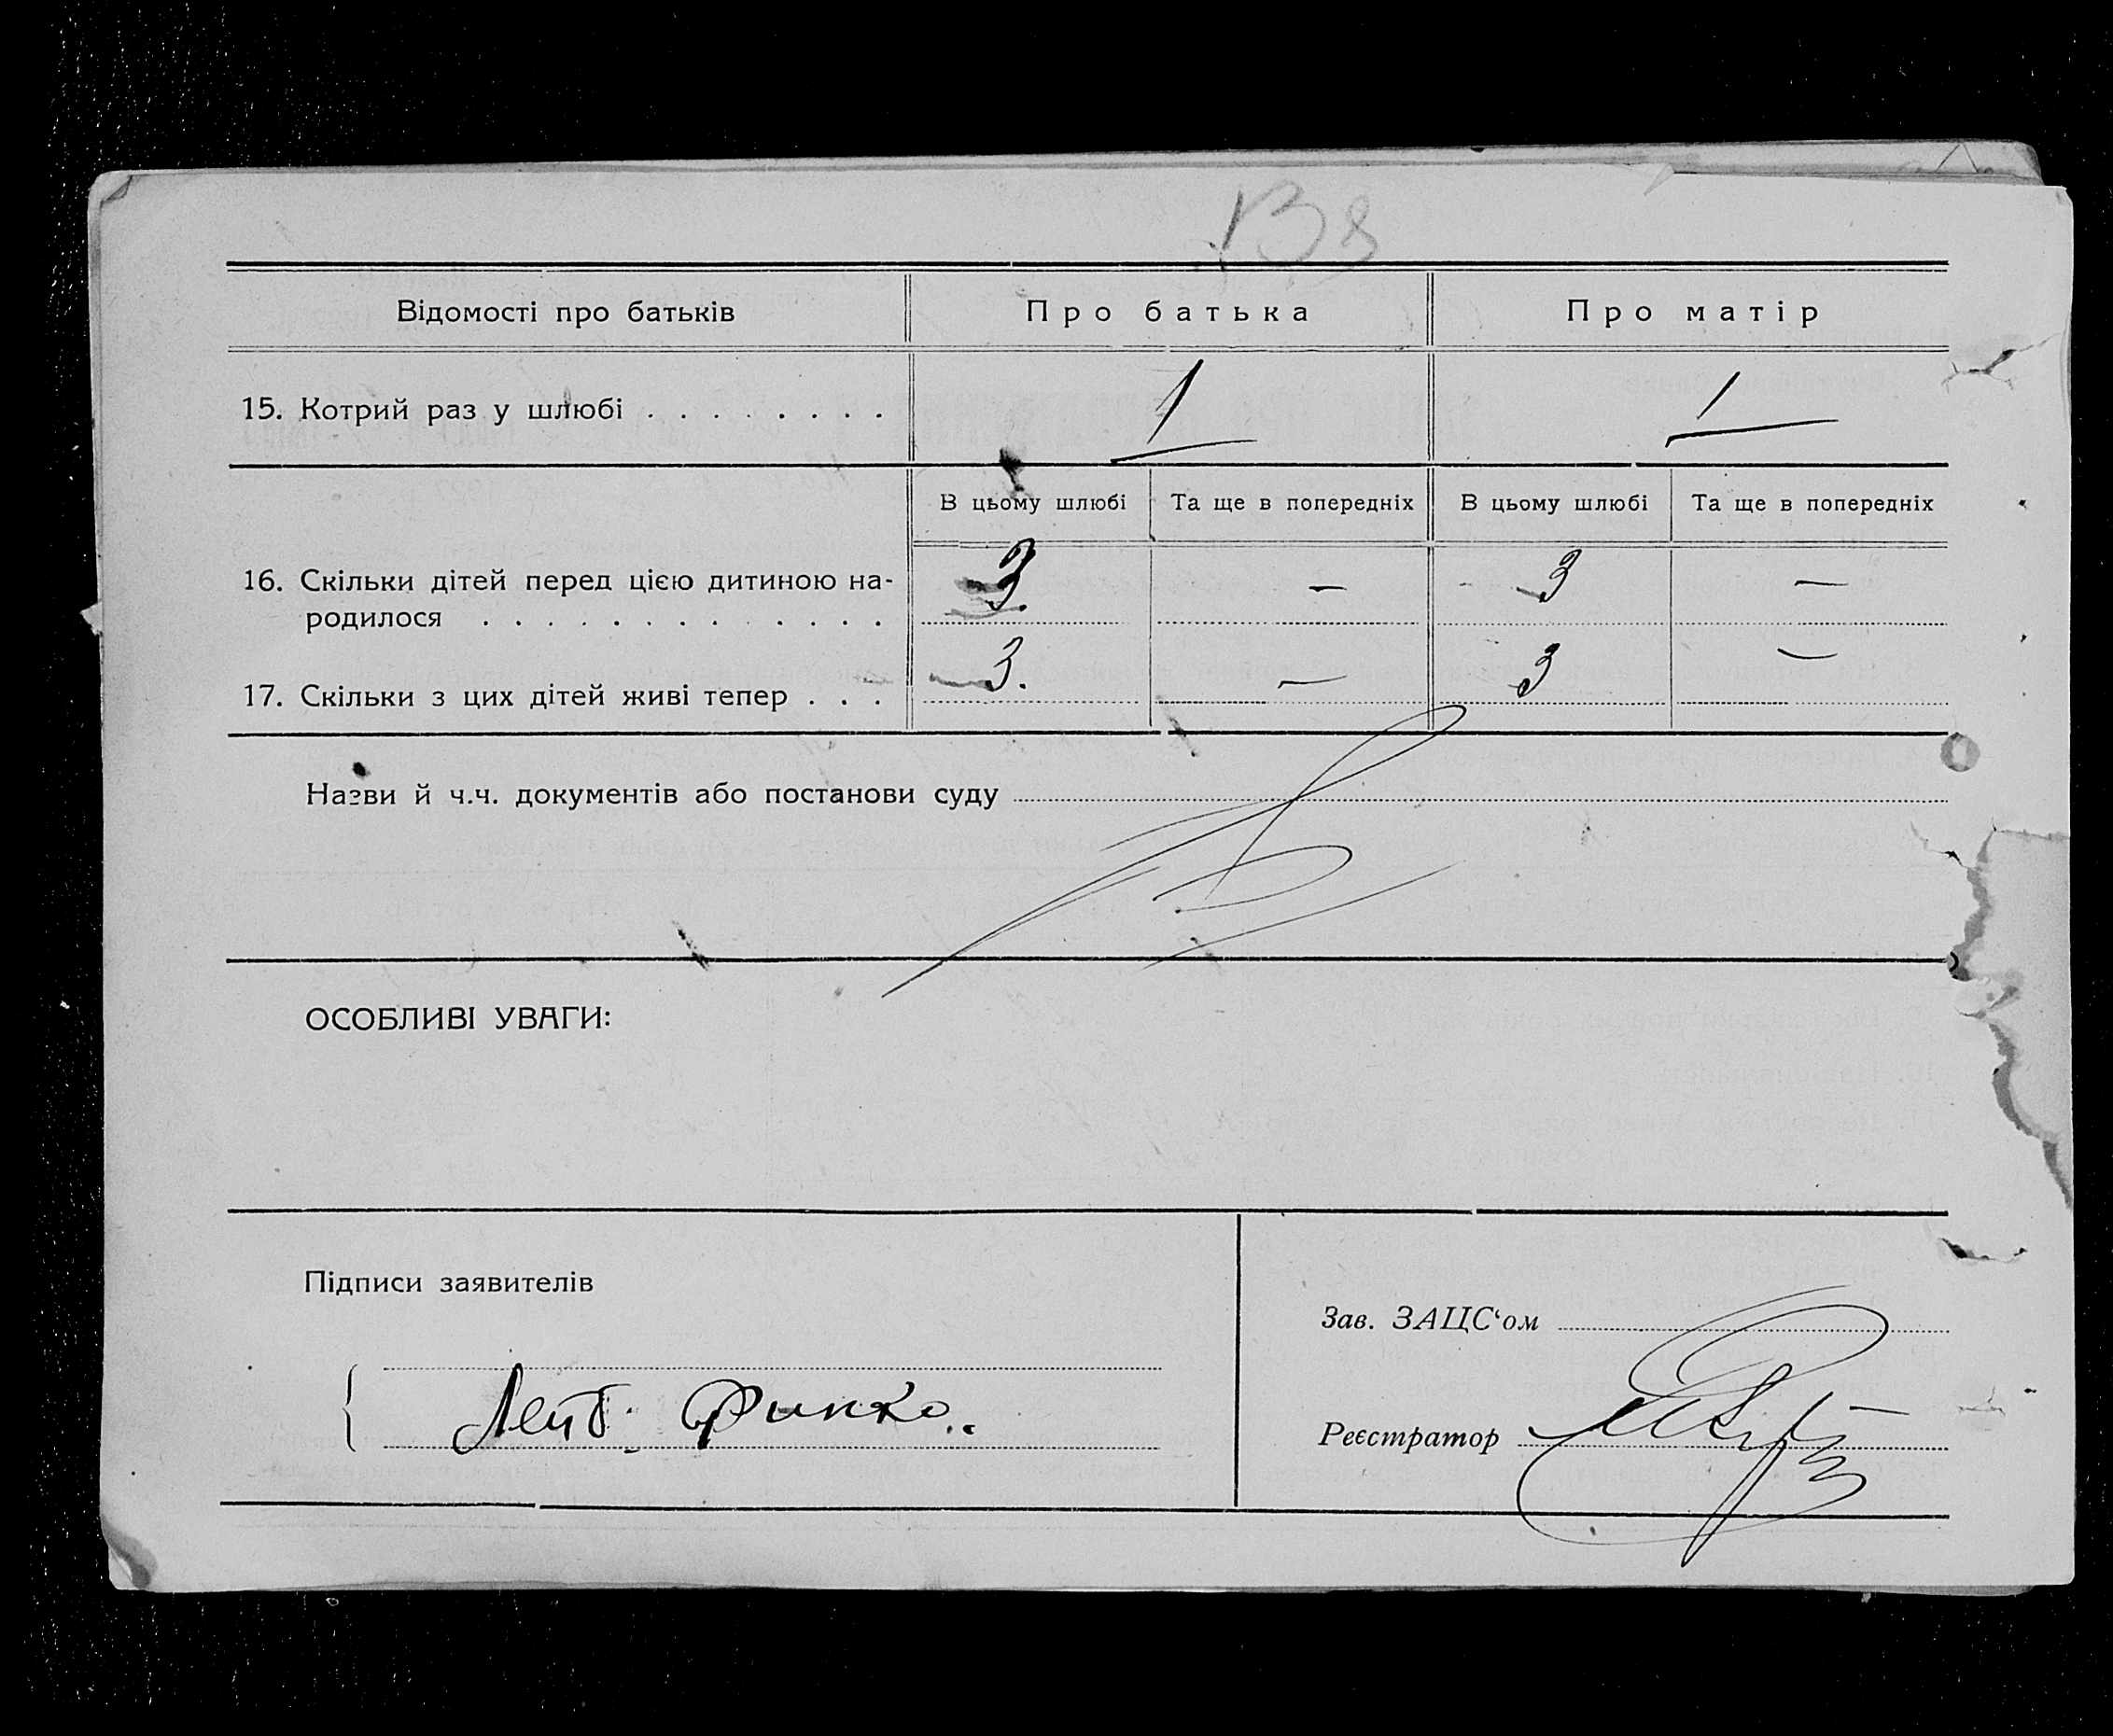 138
Відомості про батьків Про батька Про матір
15. Котрий раз у шлюбі . . . . . . . . 1 1
В цьому шлюбі Та ще в попередніх В цьому шлюбі Та ще в попередніх
16. Скільки дітей перед цією дитиною на- 3. — 3 —
родилося . . . . . . . . . . . . .
17. Скільки з цих дітей живі тепер . . . 3. — 3 —
Назви й ч.ч. документів або постанови суду
ОСОБЛИВІ УВАГИ:
Підписи заявителів
Зав. ЗАЦС‘ом
Лейб Финко
Реєстратор